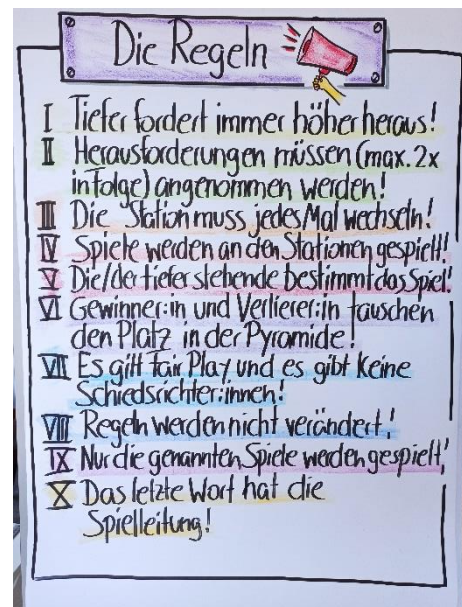 Die Regeln
I Tiefer fordert immer höher heraus!
II Herausforderungen müssen (max. 2x
in Folge) angenommen werden!
III Die Station muss jedes Mal wechseln!
IV Spiele werden an den Stationen gespielt!
V Die/der tiefer stehende bestimmt das Spiel!
VI Gewinner:in und Verlierer:in tauschen
den Platz in der Pyramide!
VII Es gilt Fair Play und es gibt keine
Schiedsrichter:innen!
VIII Regeln werden nicht verändert!
IX Nur die genannten Spiele werden gespielt!
X Das letzte Wort hat die
Spielleitung!